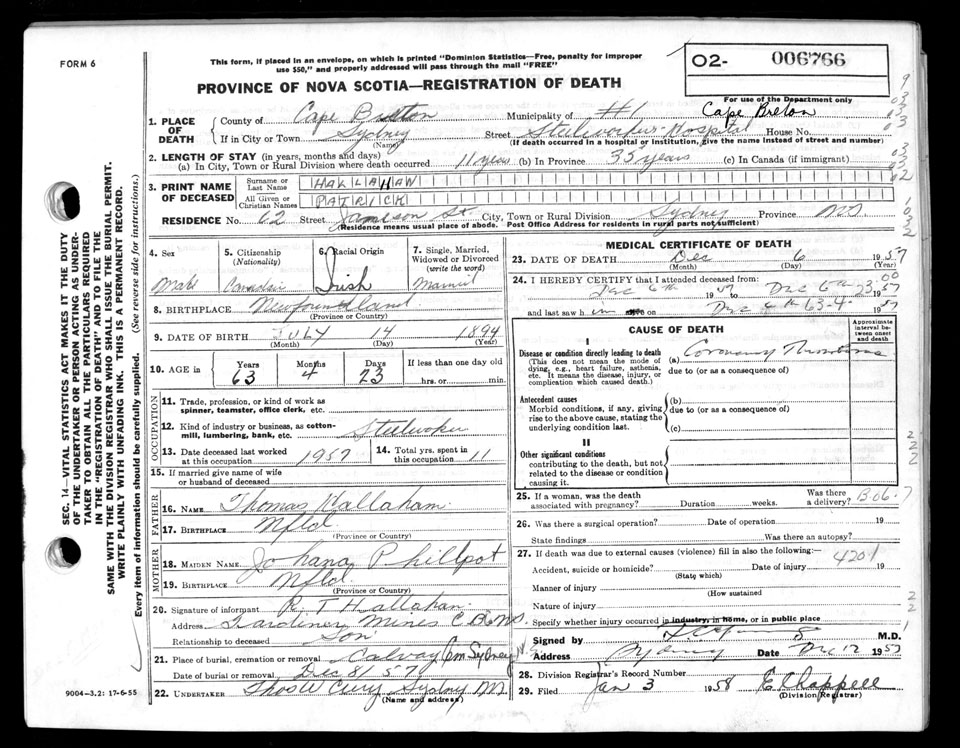 FORM 6
This form, if placed in an envelope, on which is printed "Dominion Statistics—Free, penalty for improper
use $50," and properly addressed will pass through the mail "FREE"
O2- 006766
PROVINCE OF NOVA SCOTIA—REGISTRATION OF DEATH
For use of the Department only
1. PLACE OF DEATH
County of Cape Breton Municipality of #1 Cape Breton
If in City or Town Sydney Street Steelworkers Hospital House No.
(Name) (If death occurred in a hospital or institution, give the name instead of street and number)
2. LENGTH OF STAY (in years, months and days)
(a) In City, Town or Rural Division where death occurred 11 years (b) In Province 35 years (c) In Canada (if immigrant)
3. PRINT NAME OF DECEASED
Surname or Last Name HALLAHAN
All Given or Christian Names PATRICK
RESIDENCE No. 62 Street Jamieson St. City, Town or Rural Division Sydney Province NS
(Residence means usual place of abode. Post Office Address for residents in rural parts not sufficient)
4. Sex Male
5. Citizenship (Nationality) Canadian
6. Racial Origin Irish
7. Single, Married, Widowed or Divorced (write the word) Married
8. BIRTHPLACE Newfoundland
(Province or Country)
9. DATE OF BIRTH JULY 14 1894
(Month) (Day) (Year)
10. AGE in Years 63 Months 4 Days 23 If less than one day old hrs. or min.
OCCUPATION
11. Trade, profession, or kind of work as spinner, teamster, office clerk, etc.
12. Kind of industry or business, as cotton-mill, lumbering, bank, etc. Steelworker
13. Date deceased last worked at this occupation 1957 14. Total yrs. spent in this occupation 11
15. If married give name of wife or husband of deceased
FATHER
16. NAME Thomas Hallahan
17. BIRTHPLACE Nfld
(Province or Country)
MOTHER
18. MAIDEN NAME Johana Phillpot
19. BIRTHPLACE Nfld.
(Province or Country)
20. Signature of informant R. T Hallahan
Address Gardiner Mines C.B. NS.
Relationship to deceased Son
21. Place of burial, cremation or removal Calvary Cem Sydney N.S.
Date of burial or removal Dec 8/57
22. UNDERTAKER Thos W Curry Sydney NS
(Name and address)
9004—3.2: 17-6-55
MEDICAL CERTIFICATE OF DEATH
23. DATE OF DEATH Dec 6 1957
(Month) (Day) (Year)
24. I HEREBY CERTIFY that I attended deceased from:
Dec 6th 1957 to Dec 6th 1957
and last saw him on Dec 6th 1957
CAUSE OF DEATH
Approximate interval between onset and death
I
Disease or condition directly leading to death (a) Coronary Thrombosis
(This does not mean the mode of dying, e.g., heart failure, asthenia, etc. It means the disease, injury, or complication which caused death.)
due to (or as a consequence of)
Antecedent causes (b)
Morbid conditions, if any, giving rise to the above cause, stating the underlying condition last.
due to (or as a consequence of)
(c)
II
Other significant conditions
contributing to the death, but not related to the disease or condition causing it.
25. If a woman, was the death associated with pregnancy? Duration weeks. Was there a delivery?
26. Was there a surgical operation? Date of operation 19
State findings Was there an autopsy?
27. If death was due to external causes (violence) fill in also the following:— 4201
Accident, suicide or homicide? Date of injury 19
(State which)
Manner of injury
(How sustained
Nature of injury
Specify whether injury occurred in industry, in home, or in public place
Signed by M.D.
Address Sydney Date Dec 12 1957
28. Division Registrar's Record Number
29. Filed Jan 3 1958 E Chappell
(Division Registrar)
SEC. 14—VITAL STATISTICS ACT MAKES IT THE DUTY
OF THE UNDERTAKER OR PERSON ACTING AS UNDER-
TAKER TO OBTAIN ALL THE PARTICULARS REQUIRED
IN THE "REGISTRATION OF DEATH" AND TO FILE THE
SAME WITH THE DIVISION REGISTRAR WHO SHALL ISSUE THE BURIAL PERMIT.
WRITE PLAINLY WITH UNFADING INK. THIS IS A PERMANENT RECORD.
Every item of information should be carefully supplied. (See reverse side for instructions.)